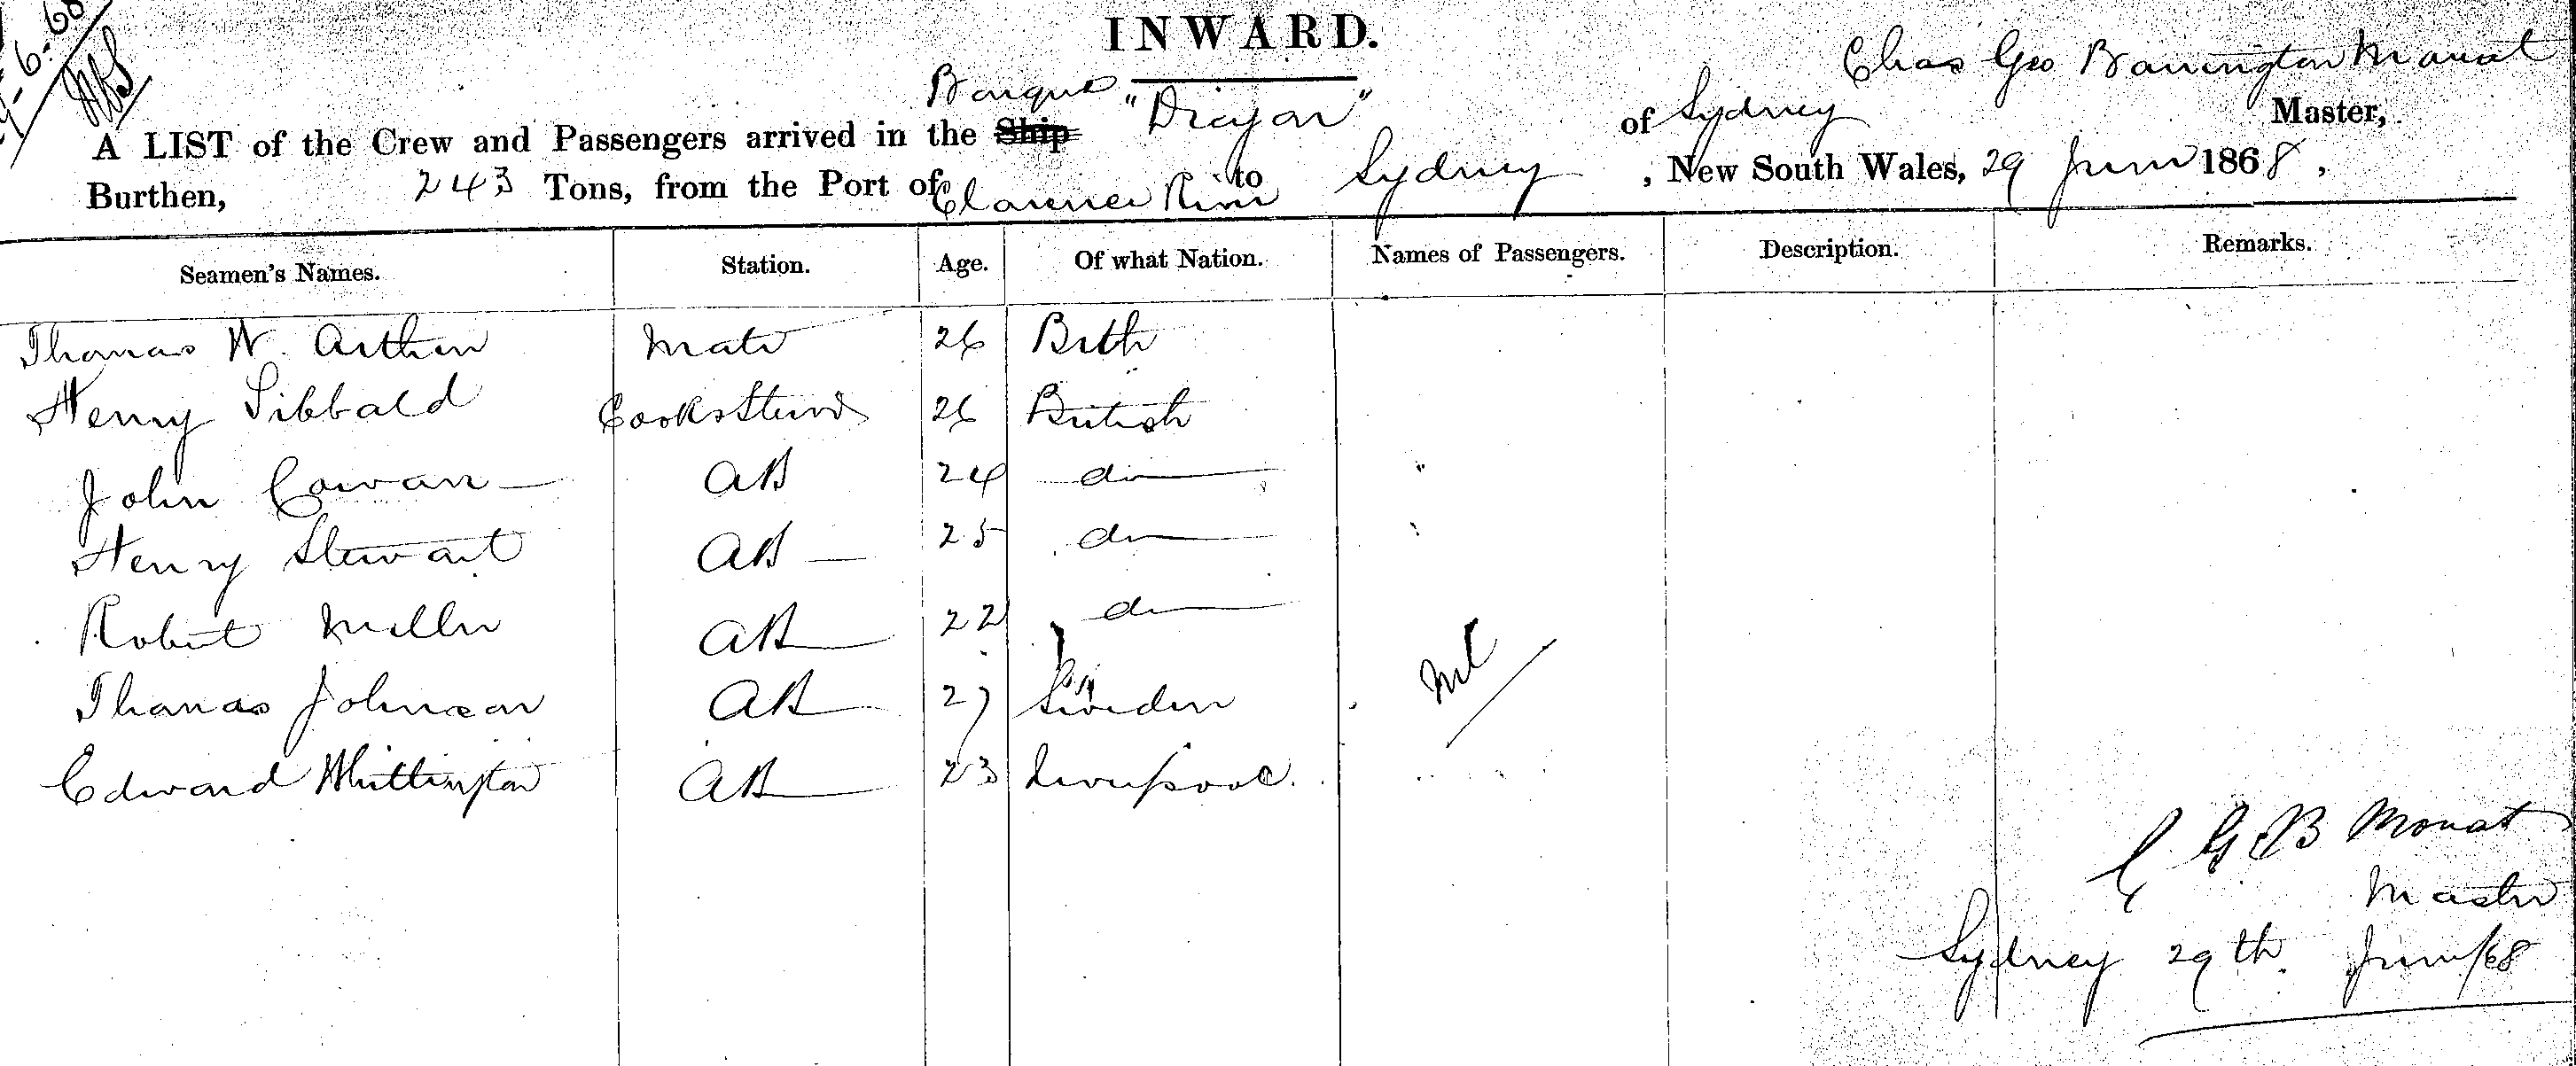 INWARD.
Chas Geo Barrington Mouat
Barque "Dragon" of Sydney Master,
A LIST of the Crew and Passengers arrived in the Ship
Burthen, 243 Tons, from the Port of Clarence River to Sydney, New South Wales, 29 June 1868,
Seamen's Names. Station. Age. Of what Nation. Names of Passengers. Description. Remarks.
Thomas W. Arthur Mate 26
Henry Sibbald Cook & Stewd 26 British
John Cowan AB 24 do
Henry Stewart AB 25 do
Robert Miller AB 22 do
Nil
Thomas Johnson AB 27 Sweden
Edward Whittington AB 23 Liverpool.
C G B Mouat
Master
Sydney 29th June/68